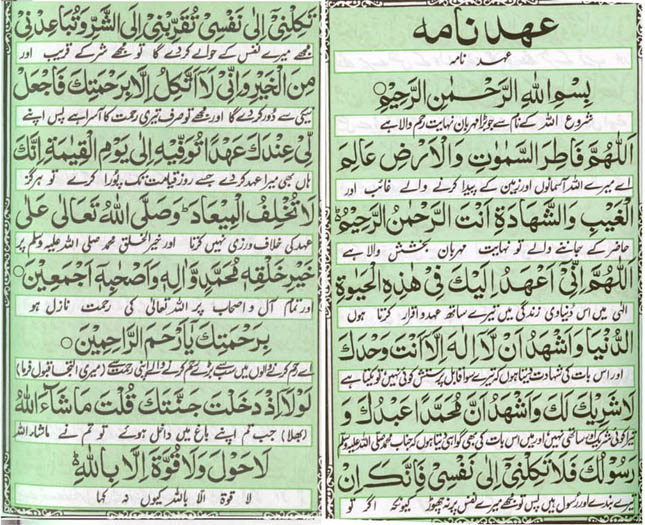 عہد نامہ
عہد نامہ
بِسْمِ اللهِ الرَّحْمٰنِ الرَّحِيْمِ
شروع اللہ کے نام سے جو بڑا مہربان نہایت رحم والا ہے
اَللّٰهُمَّ فَاطِرَ السَّمٰوٰتِ وَالْاَرْضِ عَالِمَ
اے میرے اللہ آسمانوں اور زمین کے پیدا کرنے والے غائب اور
الْغَيْبِ وَالشَّهَادَةِ اَنْتَ الرَّحْمٰنُ الرَّحِيْمُ
حاضر کے جاننے والے تو نہایت مہربان بخشش والا ہے
اَللّٰهُمَّ اِنِّيْ اَعْهَدُ اِلَيْكَ فِيْ هٰذِهِ الْحَيٰوةِ
الٰہی میں اس دنیاوی زندگی میں تیرے ساتھ عہد و اقرار کرتا ہوں
الدُّنْيَا وَاَشْهَدُ اَنْ لَّا اِلٰهَ اِلَّا اَنْتَ وَحْدَكَ
اور اس بات کی شہادت دیتا ہوں کہ تیرے سوا قابل پرستش کوئی نہیں تو یکتا ہے
لَا شَرِيْكَ لَكَ وَاَشْهَدُ اَنَّ مُحَمَّدًا عَبْدُكَ وَ
تیرا کوئی شریک و ساتھی نہیں اور میں اس بات کی بھی گواہی دیتا ہوں کہ جناب محمد صلی اللہ علیہ وسلم
رَسُوْلُكَ فَلَا تَكِلْنِيْ اِلٰى نَفْسِيْ فَاِنَّكَ اِنْ
تیرے بندے اور رسول ہیں پس تو مجھے میرے نفس پر نہ چھوڑ کیونکہ اگر تو
تَكِلْنِيْ اِلٰى نَفْسِيْ تُقَرِّبْنِيْ اِلَى الشَّرِّ وَتُبَاعِدْنِيْ
مجھے میرے نفس کے حوالے کر دے گا تو مجھے شر کے قریب اور
مِنَ الْخَيْرِ وَاِنِّيْ لَا اَتَّكِلُ اِلَّا بِرَحْمَتِكَ فَاجْعَلْ
نیکی سے دور کر دے گا اور مجھے تو صرف تیری رحمت کا آسرا ہے پس اپنے
لِيْ عِنْدَكَ عَهْدًا تُوَفِّيْهِ اِلٰى يَوْمِ الْقِيٰمَةِ اِنَّكَ
ہاں بھی میرا عہد کر دے جسے روز قیامت تک پورا کرے تو ہرگز
لَا تُخْلِفُ الْمِيْعَادَ وَصَلَّى اللهُ تَعَالٰى عَلٰى
عہد کی خلاف ورزی نہیں کرتا اور خیر الخلق محمد صلی اللہ علیہ وسلم پر
خَيْرِ خَلْقِهٖ مُحَمَّدٍ وَّاٰلِهٖ وَاَصْحٰبِهٖ اَجْمَعِيْنَ
اور تمام آل و اصحاب پر اللہ تعالیٰ کی رحمت نازل ہو
بِرَحْمَتِكَ يَا اَرْحَمَ الرَّاحِمِيْنَ
اے رحم کرنے والوں میں سب سے بڑے رحم کرنے والے اپنی رحمت سے (میری التجا قبول فرما)
لَوْلَا اِذْ دَخَلْتَ جَنَّتَكَ قُلْتَ مَا شَآءَ اللهُ
(بھلا) جب تم اپنے باغ میں داخل ہوئے تو تم نے ماشاء اللہ
لَا حَوْلَ وَلَا قُوَّةَ اِلَّا بِاللهِ
لا قوۃ الا باللہ کیوں نہ کہا